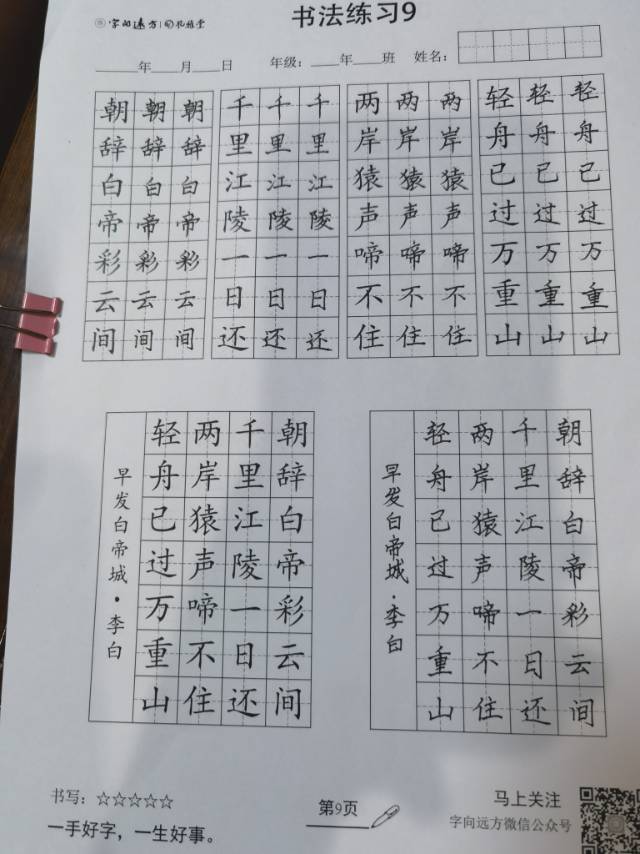 字向远方
书法练习9
年 月 日 年级: 年 班 姓名:
朝朝朝 千千千 两两两 轻轻轻
辞辞辞 里里里 岸岸岸 舟舟舟
白白白 江江江 猿猿猿 已已已
帝帝帝 陵陵陵 声声声 过过过
彩彩彩 一一一 啼啼啼 万万万
云云云 日日日 不不不 重重重
间间间 还还还 住住住 山山山
早发白帝城·李白
朝辞白帝彩云间
千里江陵一日还
两岸猿声啼不住
轻舟已过万重山
早发白帝城·李白
朝辞白帝彩云间
千里江陵一日还
两岸猿声啼不住
轻舟已过万重山
书写:☆☆☆☆☆
一手好字,一生好事。
第9页
马上关注
字向远方微信公众号